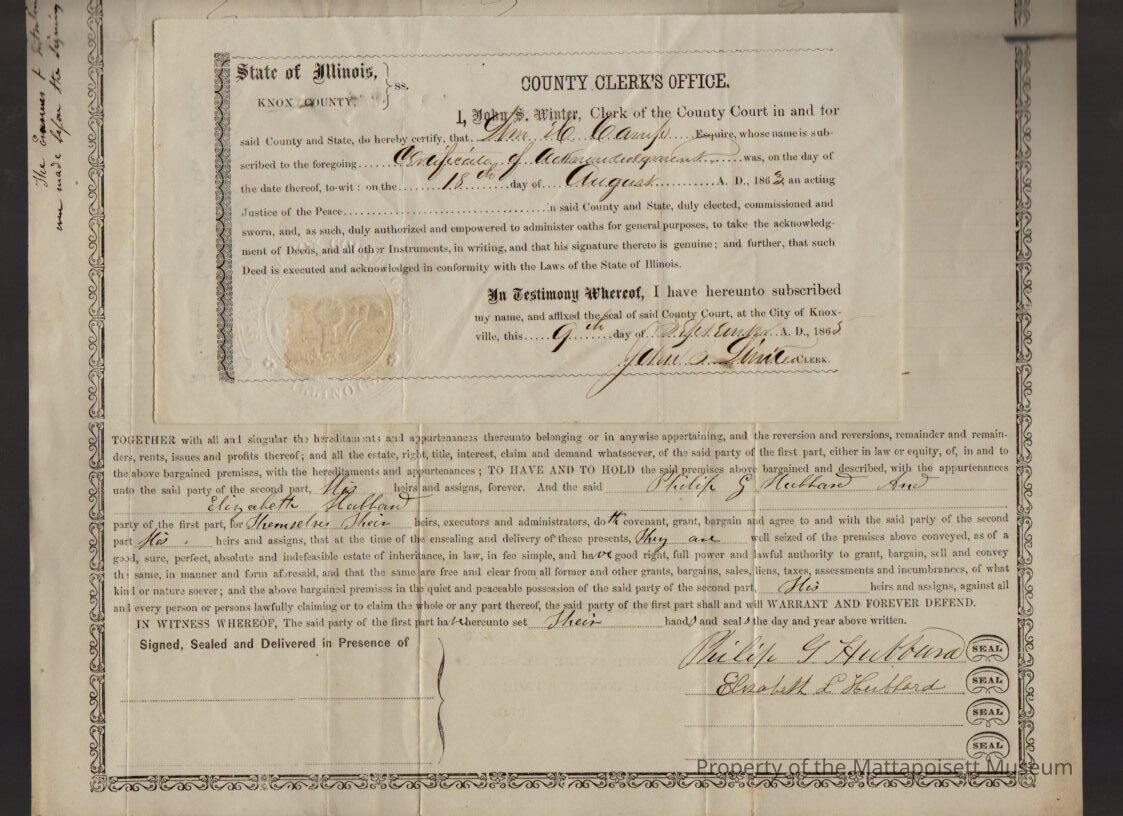 The Erasures & Interlin
were made before the signing
State of Illinois, } ss.
KNOX COUNTY,
COUNTY CLERK'S OFFICE.
I, John S. Winter, Clerk of the County Court in and for
said County and State, do hereby certify, that Wm H. Camp Esquire, whose name is sub-
scribed to the foregoing Certificate of Acknowledgment was, on the day of
the date thereof, to-wit: on the 18th day of August A. D., 1863, an acting
Justice of the Peace in said County and State, duly elected, commissioned and
sworn, and, as such, duly authorized and empowered to administer oaths for general purposes, to take the acknowledg-
ment of Deeds, and all other Instruments, in writing, and that his signature thereto is genuine; and further, that such
Deed is executed and acknowledged in conformity with the Laws of the State of Illinois.
In Testimony Whereof, I have hereunto subscribed
my name, and affixed the seal of said County Court, at the City of Knox-
ville, this 9th day of September A. D., 1863
John S. Winter CLERK.
ILLINOIS
TOGETHER with all and singular the hereditaments and appurtenances thereunto belonging or in anywise appertaining, and the reversion and reversions, remainder and remain-
ders, rents, issues and profits thereof; and all the estate, right, title, interest, claim and demand whatsoever, of the said party of the first part, either in law or equity, of, in and to
the above bargained premises, with the hereditaments and appurtenances; TO HAVE AND TO HOLD the said premises above bargained and described, with the appurtenances
unto the said party of the second part, His heirs and assigns, forever. And the said Philip G Hubbard And
Elizabeth Hubbard
party of the first part, for Themselves Their heirs, executors and administrators, doth covenant, grant, bargain and agree to and with the said party of the second
part His heirs and assigns, that at the time of the ensealing and delivery of these presents, They are well seized of the premises above conveyed, as of a
good, sure, perfect, absolute and indefeasible estate of inheritance, in law, in fee simple, and have good right, full power and lawful authority to grant, bargain, sell and convey
the same, in manner and form aforesaid, and that the same are free and clear from all former and other grants, bargains, sales, liens, taxes, assessments and incumbrances, of what
kind or nature soever; and the above bargained premises in the quiet and peaceable possession of the said party of the second part, His heirs and assigns, against all
and every person or persons lawfully claiming or to claim the whole or any part thereof, the said party of the first part shall and will WARRANT AND FOREVER DEFEND.
IN WITNESS WHEREOF, The said party of the first part have hereunto set Their hands and seals the day and year above written.
Signed, Sealed and Delivered in Presence of
Philip G Hubbard SEAL
Elizabeth L Hubbard SEAL
SEAL
SEAL
Property of the Mattapoisett Museum